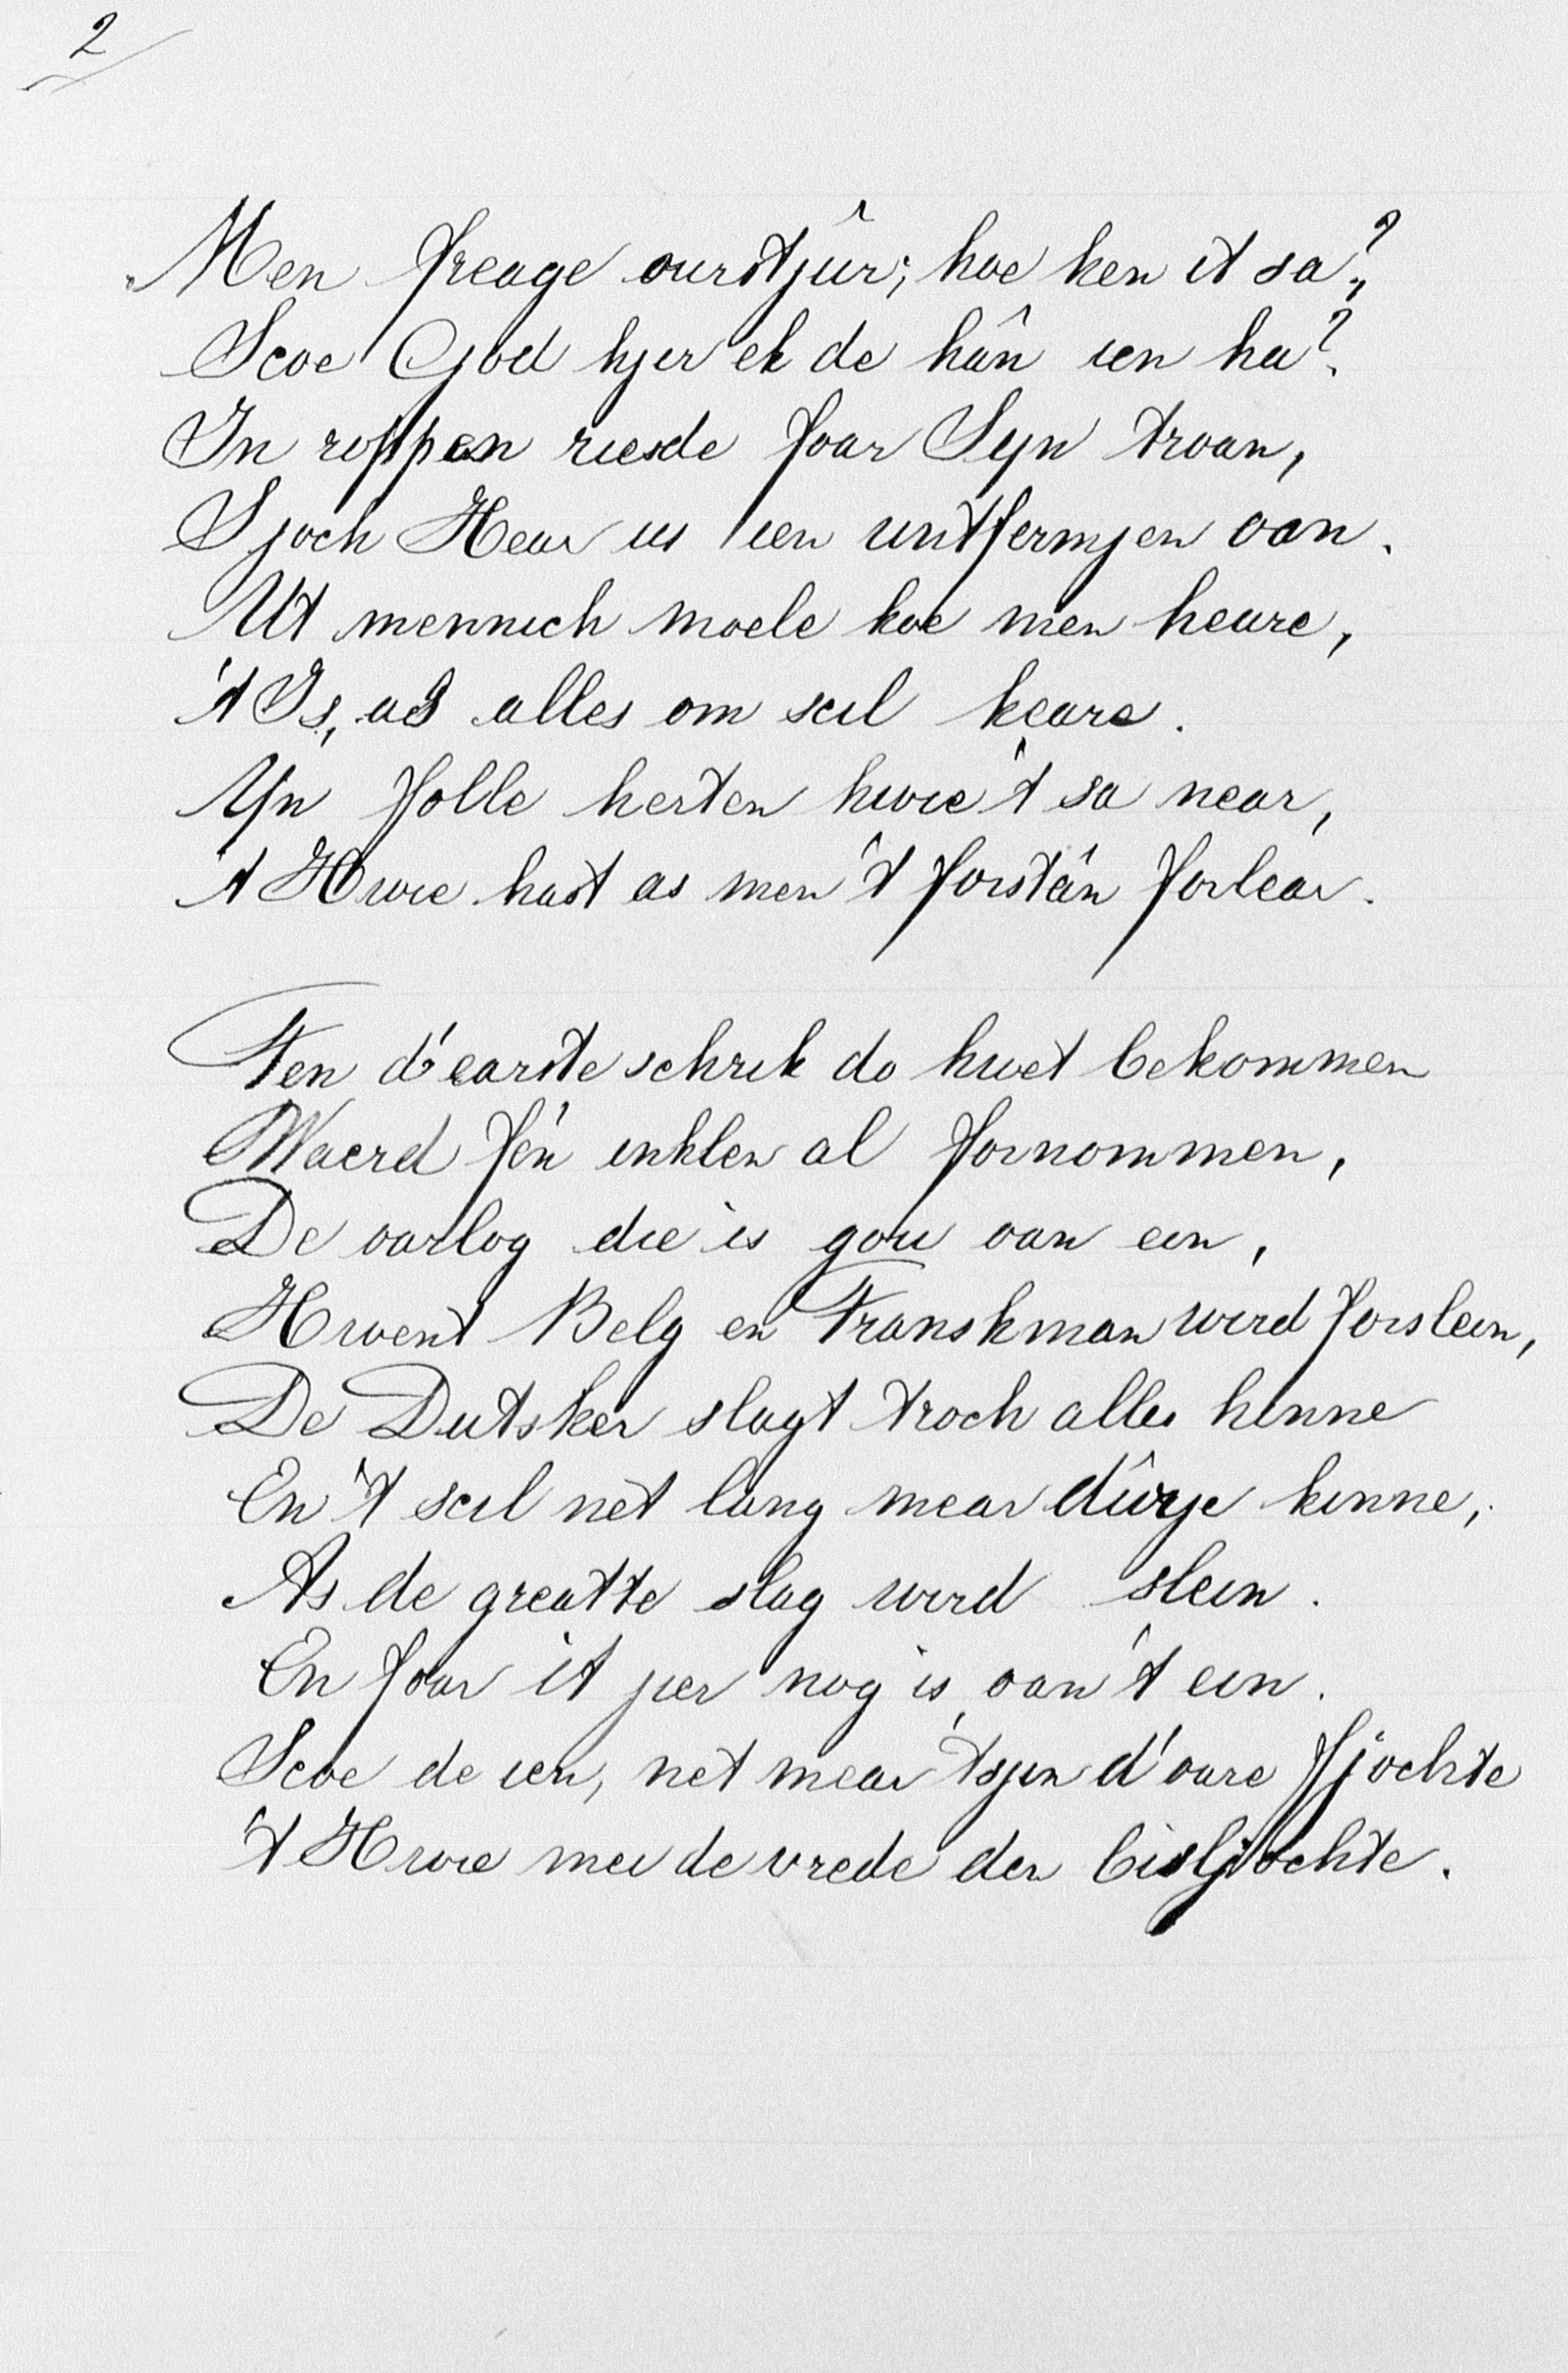 2
„Men freage ourstjûr; hoe ken it sa?”
Scoe God hjer ek de hân ien ha?
In roppen riesde foar Syn troan,
Sjoch Hear us ien untfermjen oan.
Ut mennich moele koe men heare,
't Is, as alles om scil keare.
Yn folle herten hwie 't sa near,
't Hwie hast as men 't forstân forlear.
Fen d'earste schrik do hwet bekommen
Waerd fen inklen al fornommen,
De oarlog die is gou oan ein,
Hwent Belg en Franskman wird forslein,
De Dutsker slagt troch alles hinne
En 't scil net lang mear dûrje kinne,
As de greatte slag wird slein.
En foar it jier nog is oan 't ein.
Scoe de ien, net mear tsjin d'oare fjochte
't Hwie mei de vrede den bisljochte.